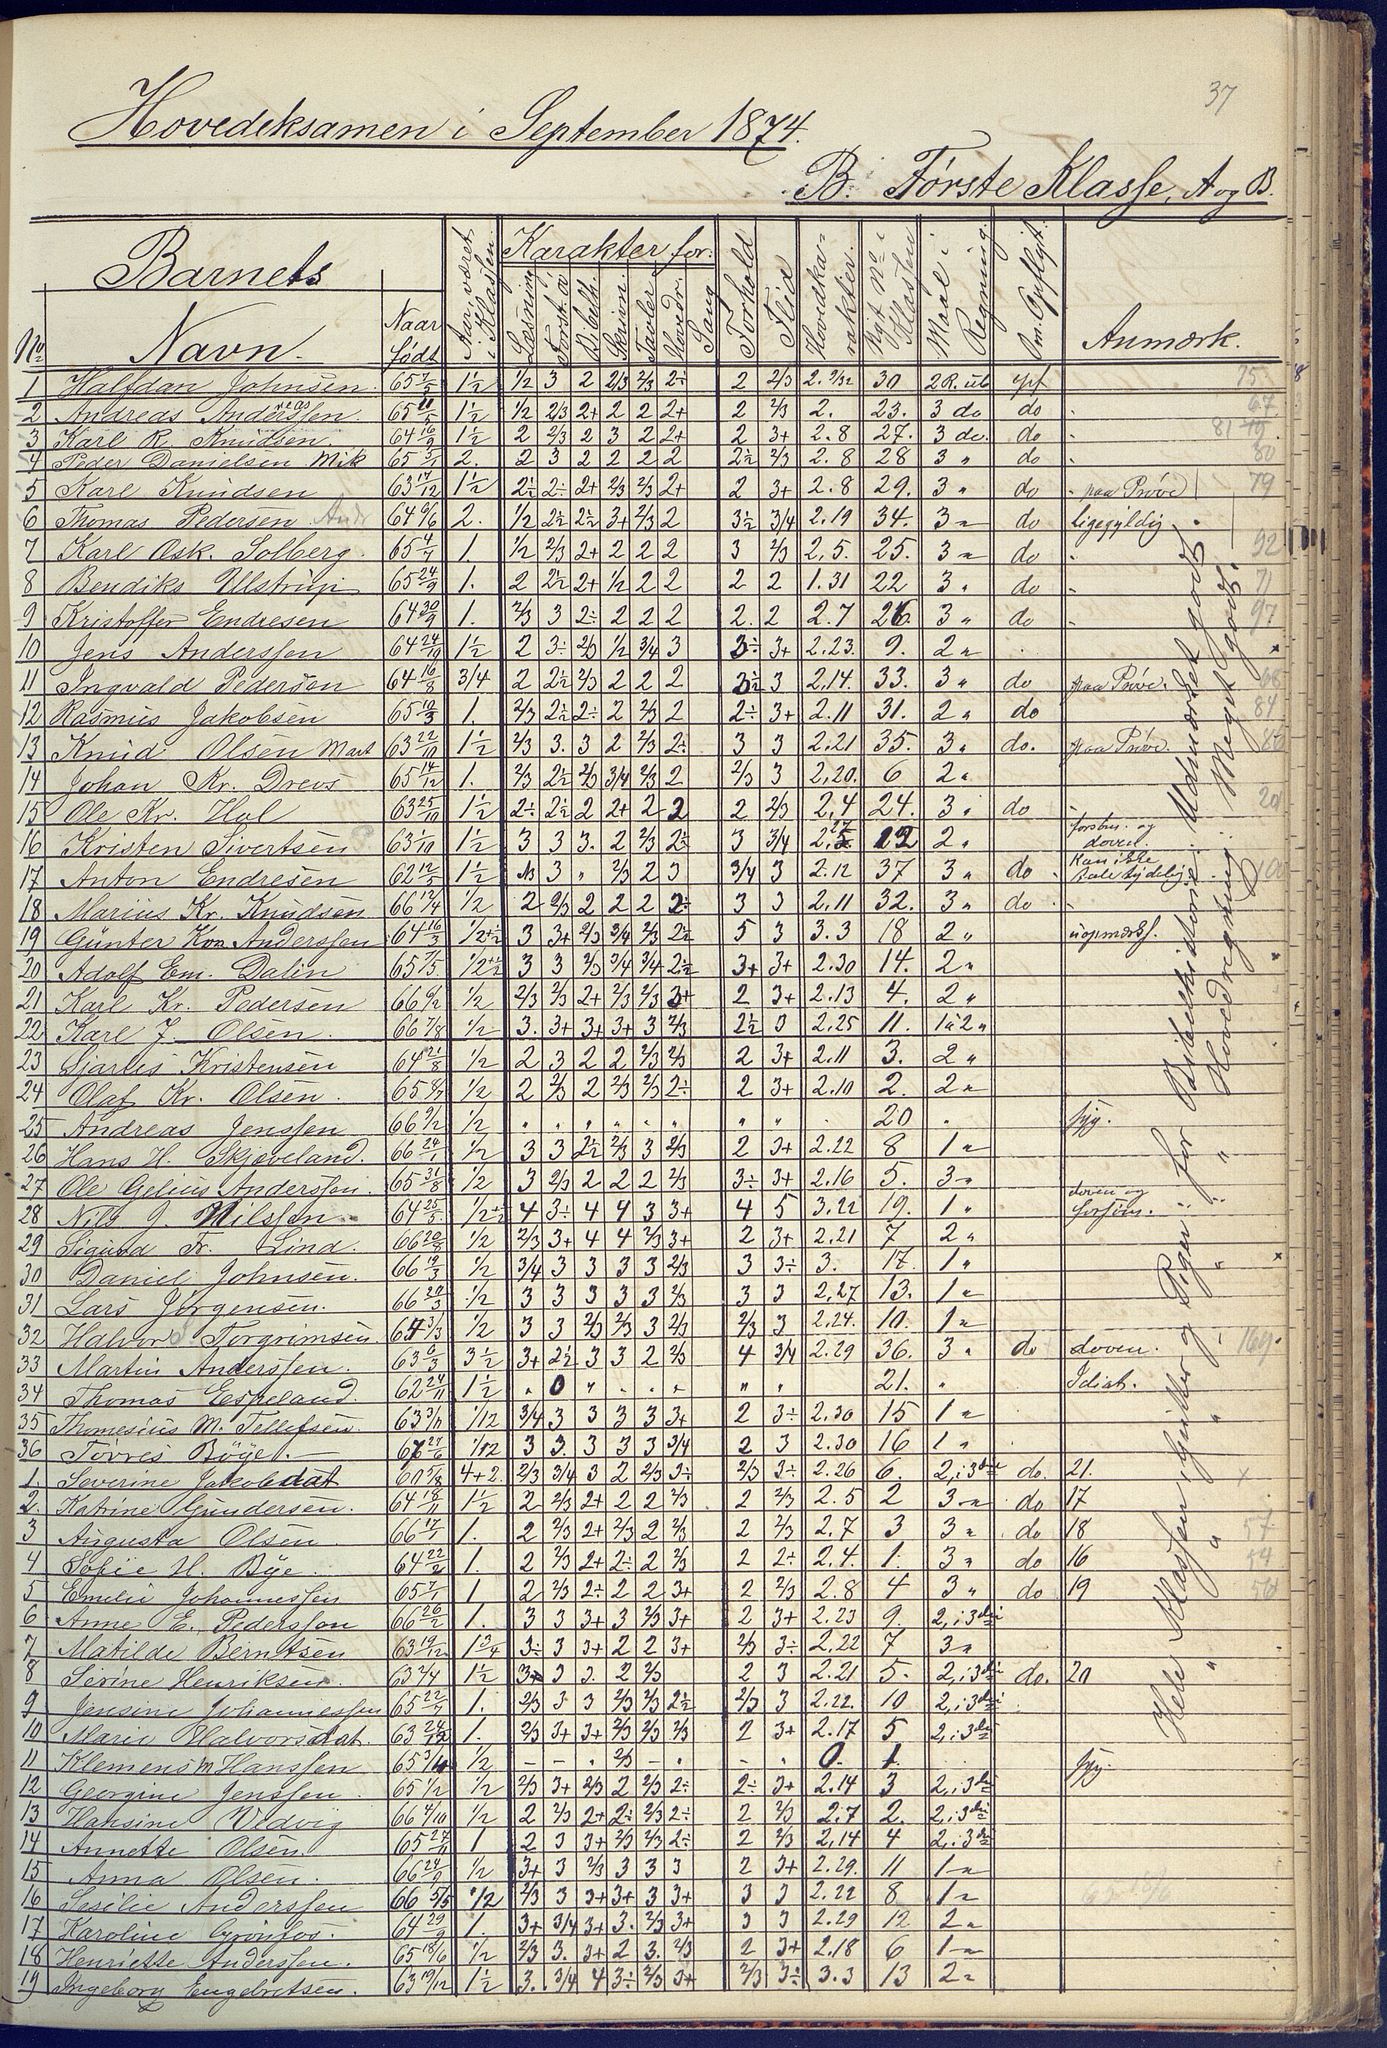 37
Hovedeksamen i September 1874.
B. Første Klasse, A og B.
No Barnets Navn. Naar født Aar været i Klassen. Karakter for: Læsning Forst. à Bibelh. Skrivn. Tavler Hovedr. Sang Forhold Flid Hovedkarakter. Nyt No i Klassen Maal i Regning. Om. Opflyt. Anmærk.
1 Halfdan Johnsen. 65 7/5 1½ 1/2 3 2 2/3 2/3 2÷ 2 2/3 2. 9/32 30 2 R. ub opf 75
2 Andreas Anderssen 65 11/5 1½ 1/2 2/3 2+ 2 2 2+ 2 2/3 2. 23. 3 do do 67
3 Karl R. Knudsen 64 16/9 1½ 2 2/3 2 3 2 2+ 2 3+ 2.8 27. 3 do. do 81
4 Peder Danielsen Mik 65 5/1 2. 2 3 2 2 2 2 2½ 2/3 2.8 28 3 " do 80
5 Karl Knudsen 63 17/12 1½ 2½ 2÷ 2+ 2/3 2/3 2+ 2 3+ 2.8 29. 3 " do paa Prøve 79
6 Thomas Pedersen And 64 6/6 2. 1/2 2½ 2½ 3+ 2/3 2 3½ 3/4 2.19 34. 3 " do ligegyldig
7 Karl Osk. Solberg. 65 4/7 1. 1/2 2/3 2+ 2 2 2 3 2/3 2.5. 25. 3 " do 92
8 Bendiks Ulstrup 65 24/9 1. 2 2½ 2+ 1/2 2 2 2 2 1.31 22 3 " do 71
9 Kristoffer Endresen 64 30/9 1. 2/3 3 2÷ 2 2 2 2. 2 2.7 26. 3 " do 97
10 Jens Anderssen 64 24/10 1½ 2 3÷ 2/3 1/2 3/4 3 3÷ 3+ 2.23. 9. 2 "
11 Ingvald Pedersen 64 16/8 3/4 2 2½ 2/3 2 2 2 3½ 3 2.14. 33. 3 " do paa Prøve. 68
12 Rasmus Jakobsen 65 10/3 1. 2/3 2½ 2÷ 2 2/3 2 2÷ 3+ 2.11 31. 2 " do 84
13 Knud Olsen Mart 63 22/10 1½ 2/3 3. 3 2 2/3 2÷ 3 3 2.21 35. 3 " do. paa Prøve.
14 Johan Kr. Drevs 65 14/12 1. 2/3 2½ 2/3 3/4 2/3 2 2/3 3 2.20. 6 2 "
15 Ole Kr. Hol 63 25/10 1½ 2÷ 2½ 2 2+ 2 2 2 2/3 2.4 24. 3 " do 20
16 Kristen Sivertsen 63 1/10 1½ 3 3 3. 2 2/3 2½ 3 3/4 12 2 " og doven.
17 Anton Endresen 62 12/5 1½ 3 " 2/3 2 3 3/4 3 2.12 37 3 " do Kan ikke tale tydelig. 100
18 Marius Kr. Knudsen 66 12/4 1/2 2 2/3 2 2 2 2÷ 3 3 2.11 32. 3 " do
19 Günter Kon Anderssen 64 16/3 1/2+½ 3 3+ 2/3 3/4 2/3 2½ 5 3 3.3 18 2 " uopmærks.
20 Adolf Em. Dalin 65 7/5 1/2+½ 3 3 2/3 3/4 3/4 2½ 3+ 3+ 2.30 14. 2 "
21 Karl Kr. Pedersen 66 6/2 1/2 2/3 2/3 2+ 2/3 2/3 3+ 2 3+ 2.13 4. 2 "
22 Karl J. Olsen. 66 7/8 1/2 3. 3+ 3+ 3+ 3 2/3 2½ 3 2.25 11. 1 à 2 "
23 Sjartis Kristensen 64 21/8 1/2 2 3 2 2 2/3 2/3 2 3+ 2.11 3. 2 "
24 Olaf Kr. Olsen. 65 8/7 1/2 2 2/3 2 2/3 2/3 2÷ 2 3+ 2.10 2. 2 "
25 Andreas Jenssen 66 9/2 1/2 " " " " " " " " 20 " syg!
26 Hans H. Skjæveland. 66 24/1 1/2 3 3 2½ 2/3 3 2/3 2 3+ 2.22 8 1 "
27 Ole Gelius Anderssen. 65 31/8 1/2 3 2/3 2 2 2 2/3 3÷ 3+ 2.16 5. 3 "
28 Nils J. Nilssen 64 25/5 1/2+½ 4 3÷ 4 4 3 3+ 4 5 3.22 19. 1 " doven og forsøm.
29 Sigurd Fr. Lind. 66 20/8 1/2 2/3 3+ 4 4 2/3 3+ 2 3+ 2.21 7 2 "
30 Daniel Johnsen. 66 19/3 1/2 3/4 3 3 3 3 2/3 3 3÷ 3. 17. 1 "
31 Lars Jörgensen. 66 20/3 1/2 3 3 3 3 3 2/3 3 3 2.27 13. 1 "
32 Halvor Torgrimsen 64 3/3 1/2 3 3 2/3 2/3 3 2/3 2/3 3 2.24. 10. 1 "
33 Martin Anderssen. 63 6/3 3½ 3+ 2½ 3 3 2 2/3 4 3/4 2.29 36. 3 " do doven. 169
34 Thomas Espeland. 62 24/11 1½ " 0 " " " " " " 21. " Idiot.
35 Thomesius M. Tellefsen. 63 3/11 1/12 3/4 3 3 3 3 3+ 2 3÷ 2.30 15 1 "
36 Törres Böye. 66 27/6 1/12 3 3. 3 3 3 3/4 2 3 2.30 16 1 "
1. Severine Jakobsdat 60 5/8 4+2. 2/3 3/4 3 2 2/3 3÷ 2/3 3÷ 2.26 6. 2, i 3die do. 21.
2. Katrine Gundersen. 64 18/11 1½ 2 2/3 2+ 2 2 2/3 2 2/3 2.5 2 3 " do 17
3 Augusta Olsen 66 17/1 1. 2 2/3 2+ 2/3 2 2/3 2 2/3 2.7 3 3 " do 18 57
4 Sofie H. Bye. 64 22/2 1. 2 2/3 2+ 2÷ 2 2/3 2 2÷ 2.4. 1. 3 " do 16 54
5 Emelie Johannessen 65 7/1 1 2 2/3 2÷ 2 2 3+ 2 2/3 2.8 4 3 " do 19 50
6 Anne E. Pederssen 66 26/2 1. 3 3 3+ 3 2/3 3+ 2 3+ 2.23 9. 2, i 3die
7 Matilde Berntsen 63 19/12 1¾ 3÷ 3 3+ 2 2 3+ 2/3 3÷ 2.22 7. 3 "
8 Serine Henriksen 63 2/4 1½ 3+ 3 3. 2 2/3 2 3 2.21 5. 2, i 3die do. 20
9 Jensine Johannessen 65 22/7 1. 2/3 3 3 2/3 2/3 2½ 2/3 3 2.22. 10 2, i 3die
10 Marie Halvorsdat. 63 24/12 1. 2/3 3+ 3+ 2/3 2/3 2/3 2 3+ 2.17 5 2, i 3die
11 Klemens M Hanssen 65 3/4 1/2 - - " 2/3 - " " " 0. 1. syg.
12 Georgine Jenssen. 65 1/2 1/2 2/3 3+ 2/3 2 2/3 2÷ 2÷ 3+ 2.14 3 2, i 3die
13 Hansine Vedvig 66 4/10 1/2 2 2/3 2+ 2÷ 2/3 2÷ 2 2/3 2.7 2. 2, i 3die
14 Annette Olsen. 65 24/11 1 2 3 3+ 2/3 2/3 2÷ 2 2/3 2.14 4 2. i 3die
15 Anna Olsen. 66 24/9 1/2 3+ 3 2/3 3 3 3 2 3+ 2.29. 11 1 "
16 Sesilie Anderssen 66 5/5 1/2 2/3 3 3+ 3+ 3 3+ 3 3 2.22 8 1 "
17 Karoline Grönfos. 64 29/9 1. 3+ 3/4 3+ 3. 2/3 3+ 3 3 2.29 12 2 "
18 Henriette Anderssen. 65 18/6 1/2 2/3 3. 3+ 2 3. 2/3 2 3+ 2.18 6 1 "
19 Ingeborg Engebretsen. 63 19/12 1½ 3. 3/4 4 3÷ 2/3 3+ 2/3 3÷ 3.3 13 2 "
Hele Klassen, Gutter og Piger: for Bibelhistorie: Udmærket godt.
" " " " " " Hovedregning: Meget godt.